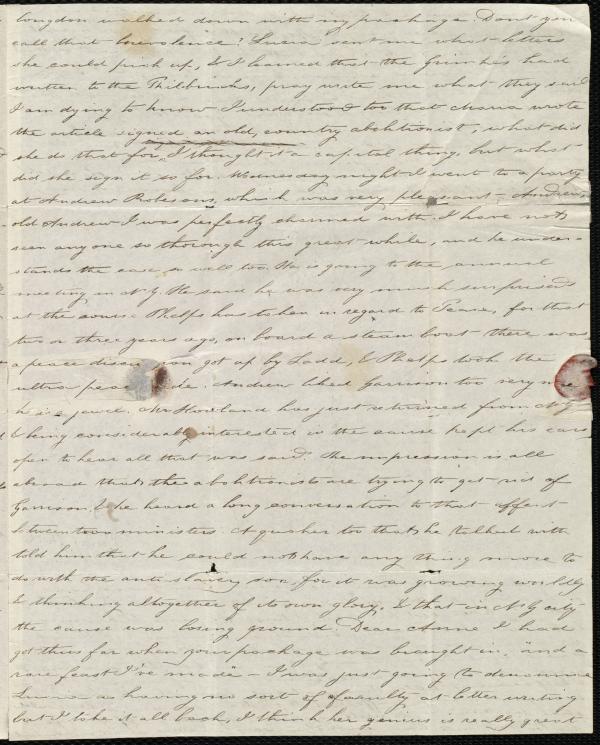 Congdon walked down with my package. Don't you
call that benevolence? Lucia sent me what letters
she could pick up, & I learned that the Grimkes had
written to the Philbricks, pray write me what they said
I am dying to know I understood too that Maria wrote
the article signed an old, country abolitionist, what did
she do, that for, I thought it a capital thing, but what
did she sign it so for. Wednesday night I went to a party
at Andrew Robesons, which was very pleasant - Andrew,
old Andrew I was perfectly charmed with, I have not
seen anyone so thorough this great while, and he under-
stands the case, so well too. He is going to the annual
meeting in N Y. He said he was very much surprised
at the course Phelps has taken in regard to Peace, for that
two or three years ago, on board a steam boat there was
a peace discussion got up by Ladd, & Phelps took the
ultra peace side. Andrew liked Garrison too very much
he is a jewel. Mr Howland has just returned from N Y
& being considerably interested in the cause kept his ears
open to hear all that was said. The impression is all
abroad that, the abolitionists are trying to get rid of
Garrison, & he heard a long conversation to that effect
between two ministers. A quaker too that he talked with
told him that he could not have any thing more to
do with the anti slavery soc, for it was growing worldly
& thinking altogether of its own glory, & that in N Y city
the cause was losing ground. Dear Anne I had
got thus far when your package was brought in, "and a
rare feast I've made" - I was just going to denounce
Emma as having no sort of faculty at letter writing
but I take it all back, I think her genius is really great